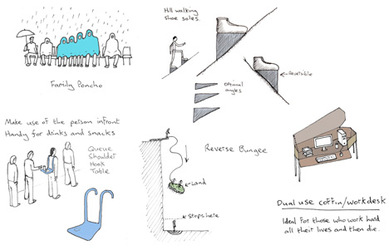 Family Poncho
Hill walking
shoe soles.
Optional
angles
reversible
Make use of the person infront
Handy for drinks and snacks
Queue
Shoulder
Hook
Table
Reverse Bungee
Land
stops here
Dual use coffin/workdesk
Ideal for those who work hard
all their lives and then die